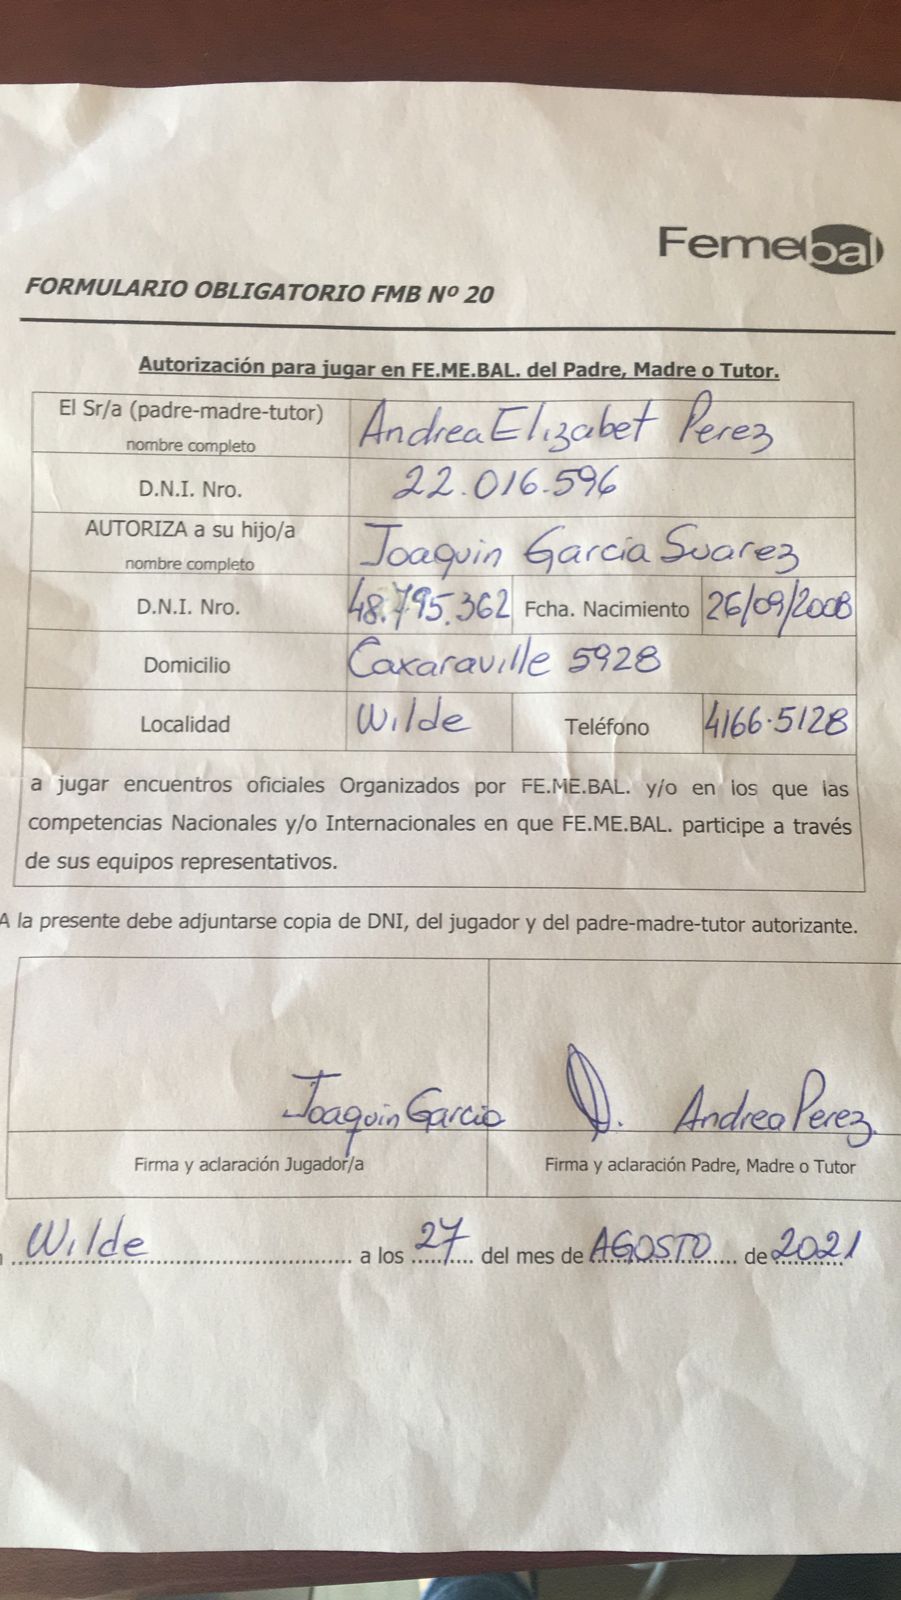 Femebal
FORMULARIO OBLIGATORIO FMB Nº 20
Autorización para jugar en FE.ME.BAL. del Padre, Madre o Tutor.
El Sr/a (padre-madre-tutor) nombre completo Andrea Elizabet Perez
D.N.I. Nro. 22.016.596
AUTORIZA a su hijo/a nombre completo Joaquin Garcia Suarez
D.N.I. Nro. 48.795.362 Fcha. Nacimiento 26/09/2008
Domicilio Caxaraville 5928
Localidad Wilde Teléfono 4166-5128
a jugar encuentros oficiales Organizados por FE.ME.BAL. y/o en los que las
competencias Nacionales y/o Internacionales en que FE.ME.BAL. participe a través
de sus equipos representativos.
A la presente debe adjuntarse copia de DNI, del jugador y del padre-madre-tutor autorizante.
Joaquin Garcia Andrea Perez
Firma y aclaración Jugador/a Firma y aclaración Padre, Madre o Tutor
Wilde a los 27 del mes de AGOSTO de 2021